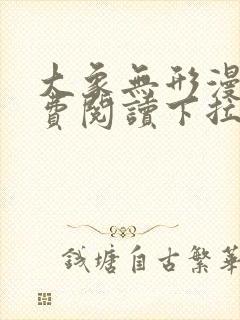 大象無形漫
費閱讀下拉
錢塘自古繁華